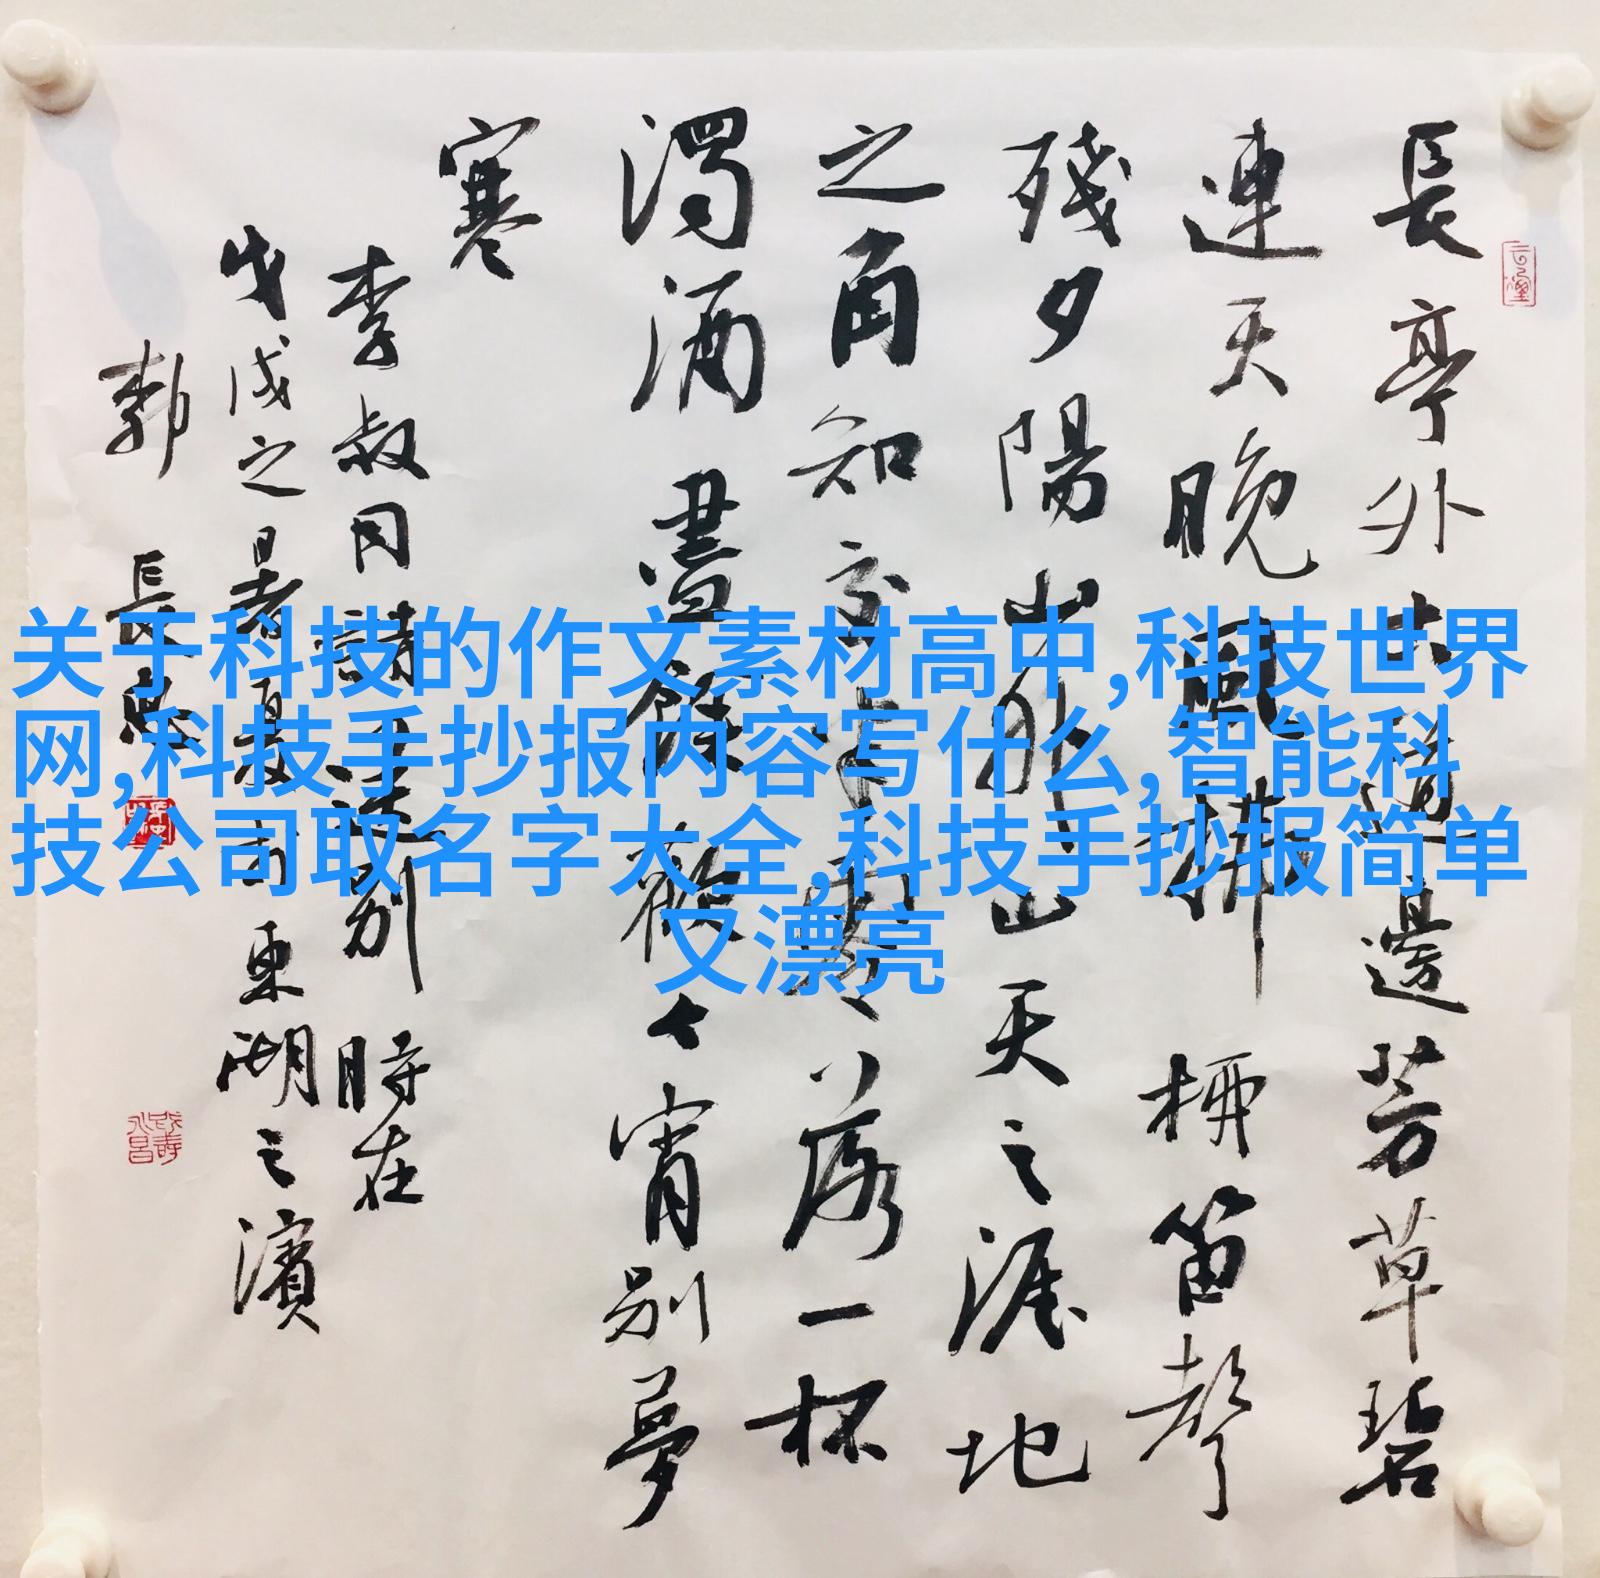 長亭外古道邊芳草碧
連天晚風拂柳笛聲
殘夕陽山外山天之涯地
之角知交半零落一杯
濁酒盡餘歡今宵別夢
寒
李叔同詩送別 時在
戊戌之暑夏於東湖之濱
郭長
关于科技的作文素材高中,科技世界
网,科技手抄报内容写什么,智能科
技公司取名字大全,科技手抄报简单
又漂亮